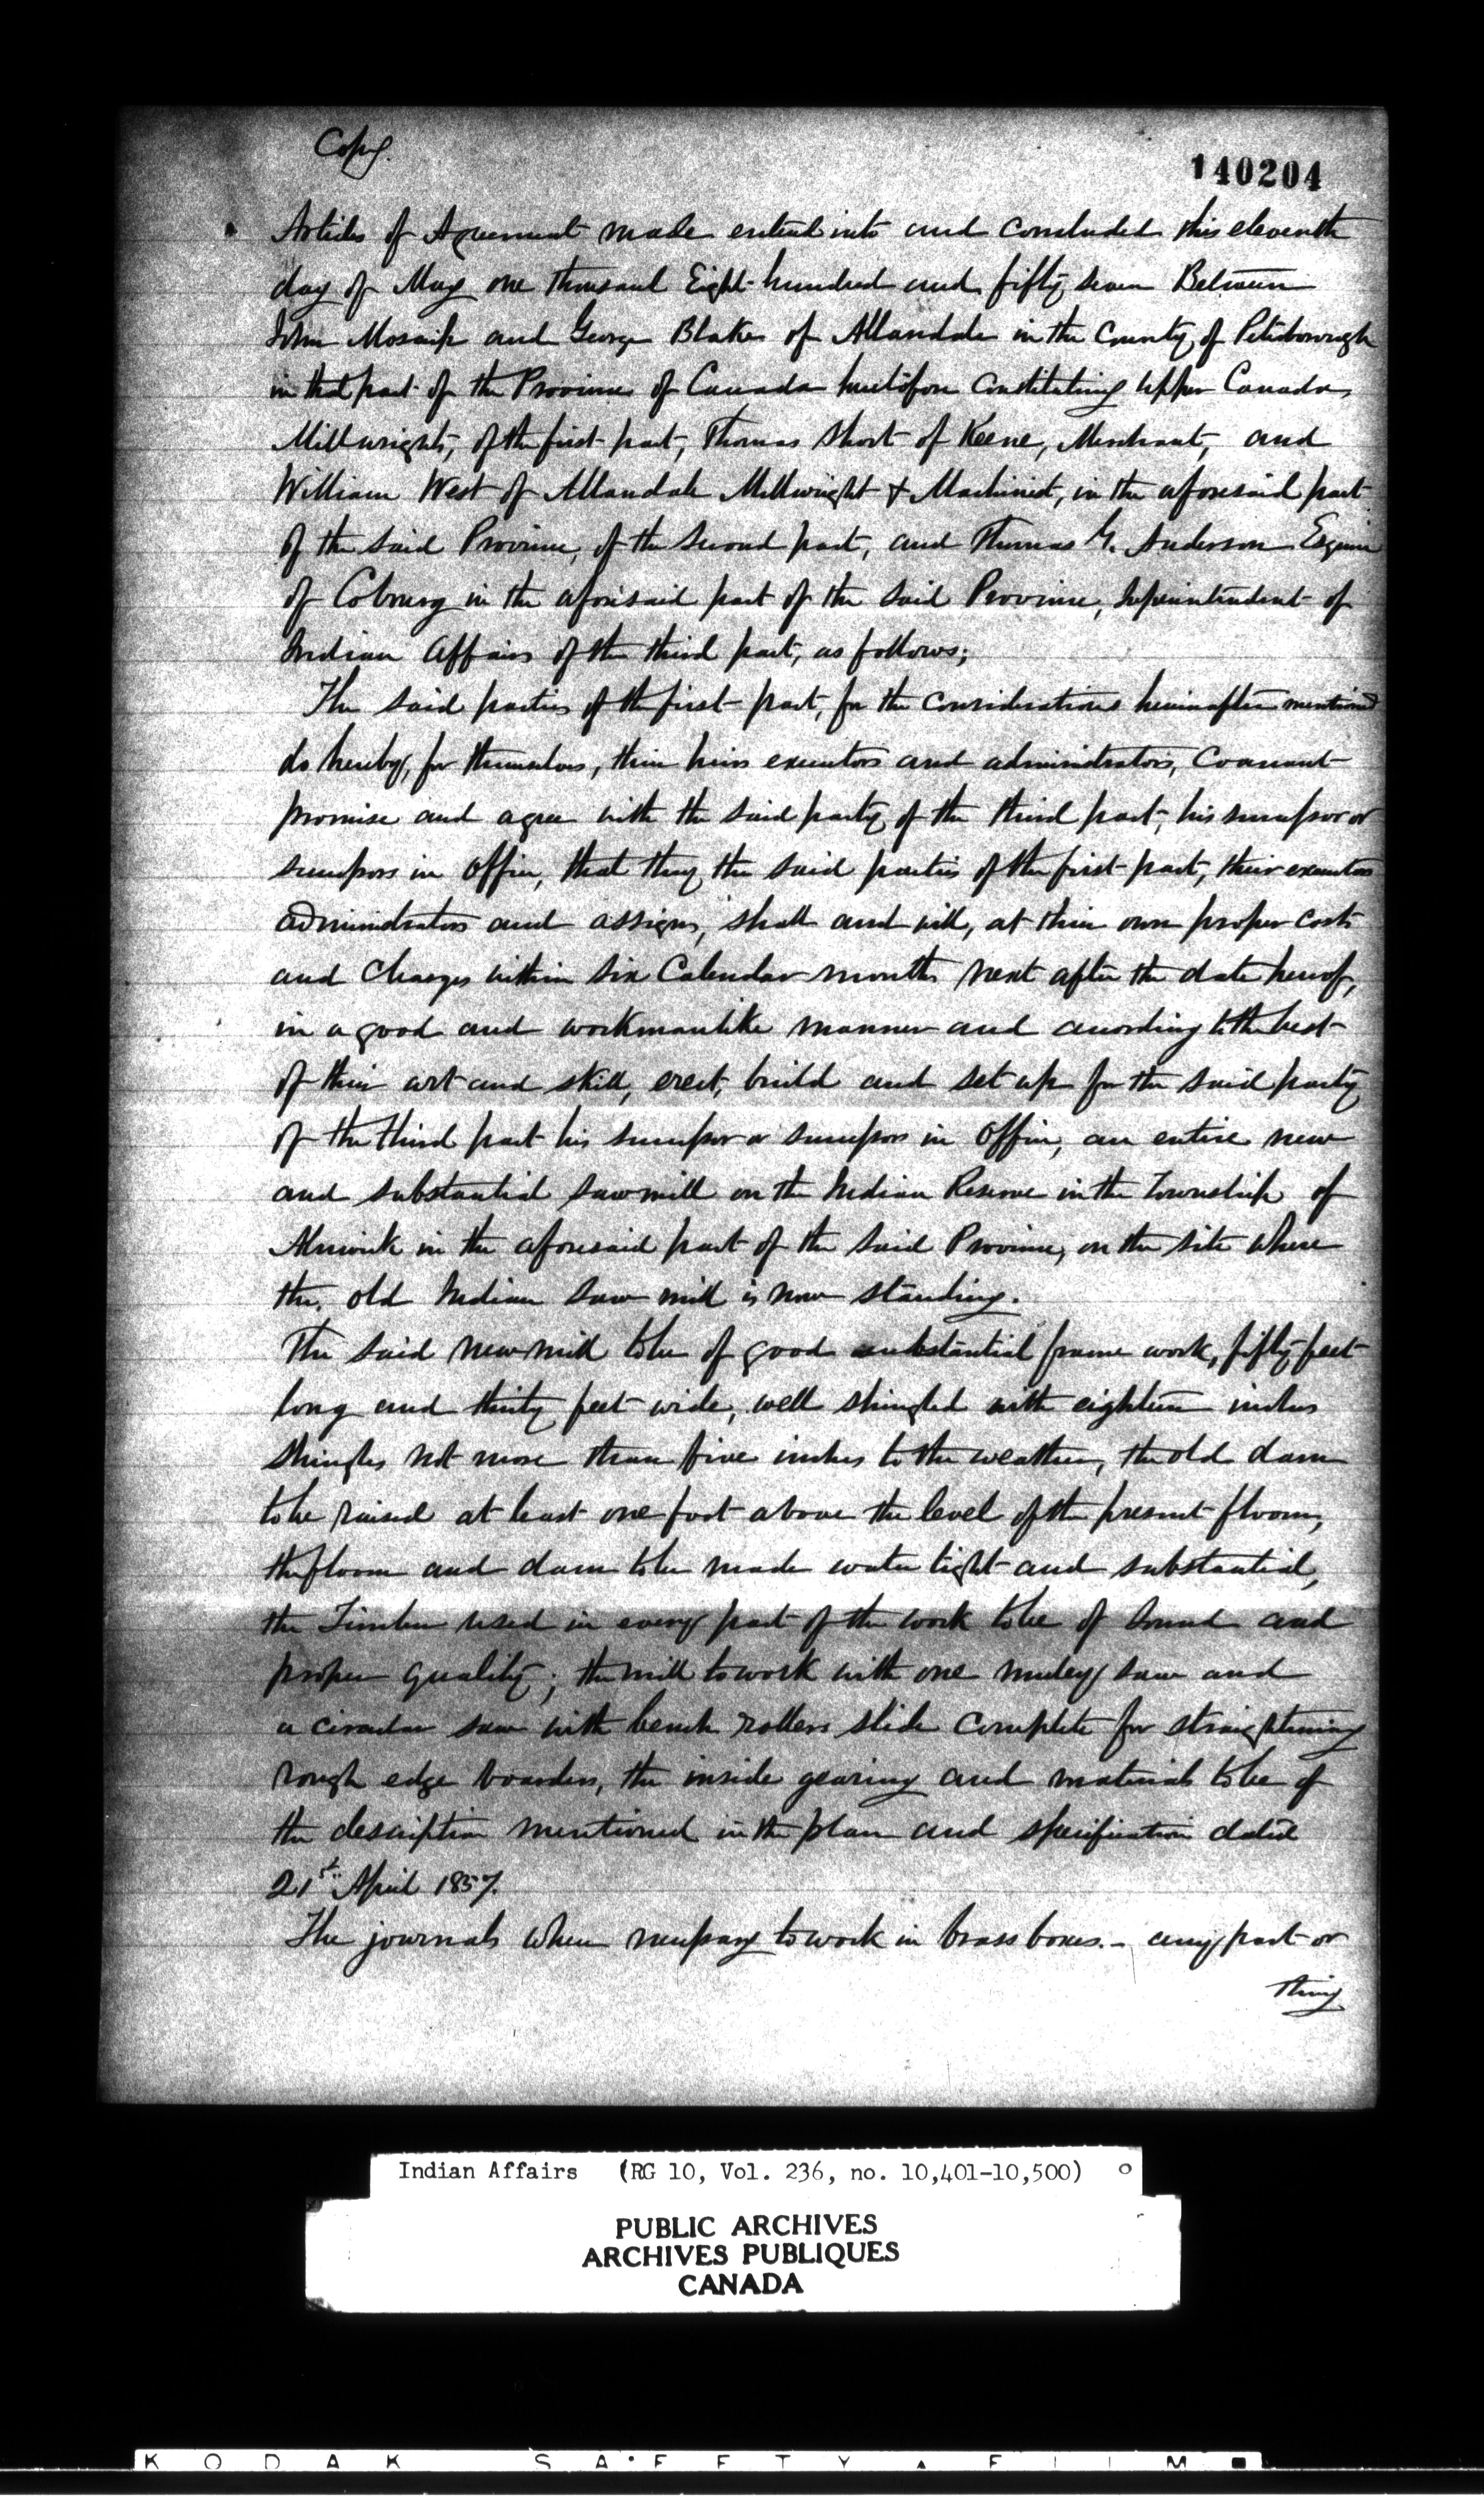 Copy.
140204
Articles of Agreement made entered into and concluded this eleventh
day of May one thousand Eight hundred and fifty seven Between
John Mosaip and George Blake of Allandale in the County of Peterborough
in that part of the Province of Canada heretofore constituting Upper Canada,
Millwrights, of the first part, Thomas Short of Keene, Merchant, and
William West of Allandale Millwright & Machinist, in the aforesaid part
of the said Province, of the second part, and Thomas G. Anderson Esquire
of Cobourg in the aforesaid part of the said Province, Superintendent of
Indian Affairs of the third part, as follows;
The said parties of the first part, for the considerations hereinafter mentioned
do hereby, for themselves, their heirs executors and administrators, Covenant
promise and agree with the said party of the third part, his successor or
successors in Office, that they the said parties of the first part, their executors
administrators and assigns, shall and will, at their own proper costs
and Charges within six Calendar months next after the date hereof,
in a good and workmanlike manner and according to the best
of their art and skill, erect, build and set up for the said party
of the third part his successor or successors in Office, an entire new
and substantial sawmill on the Indian Reserve in the Township of
Alnwick in the aforesaid part of the said Province, on the site where
the old Indian Saw mill is now standing.
The said new mill to be of good substantial frame work, fifty feet
long and thirty feet wide, well shingled with eighteen inches
shingles not more than five inches to the weather, the old dam
to be raised at least one foot above the level of the present floom,
the floom and dam to be made water tight and substantial,
the Timber used in every part of the work to be of sound and
proper quality; the mill to work with one muley saw and
a circular saw with bench rollers slide complete for straightening
rough edge boarders, the inside gearing and materials to be of
the description mentioned in the plan and specification dated
21st April 1857.
The journals when necessary to work in brass boxes. - any part or
thing
Indian Affairs (RG 10, Vol. 236, no. 10,401-10,500)
PUBLIC ARCHIVES
ARCHIVES PUBLIQUES
CANADA
KODAK SAFETY FILM